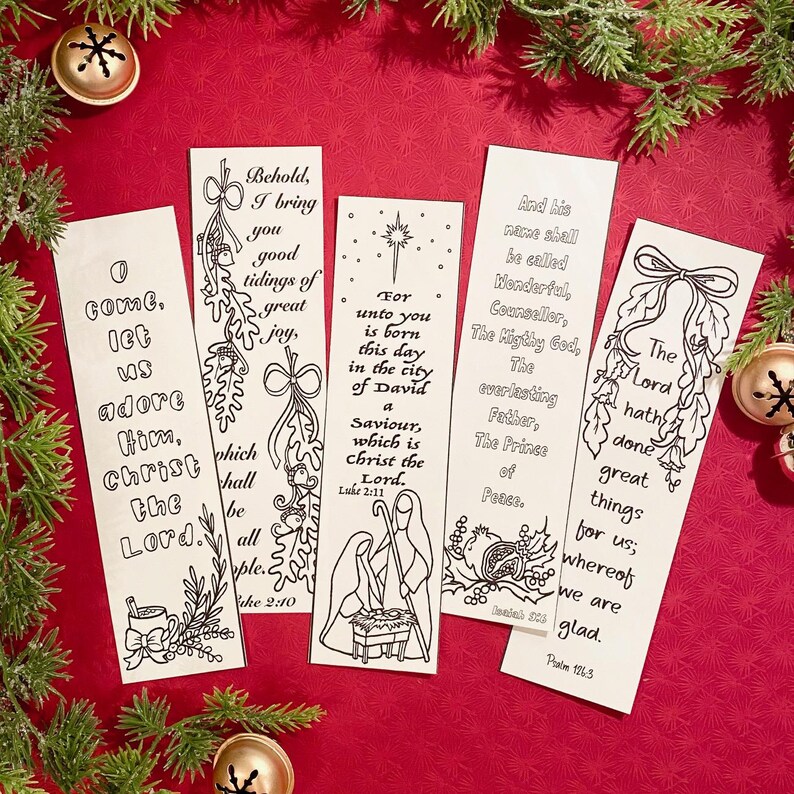 O
come,
let
us
adore
Him,
Christ
the
Lord.
Behold,
I bring
you
good
tidings of
great
joy,
which
shall
be
all
2:10
For
unto you
is born
this day
in the city
of David
a
Saviour,
which is
Christ the
Lord.
Luke 2:11
And his
name shall
be called
Wonderful,
Counsellor,
The Migthy God,
The
everlasting
Father,
The Prince
of
Peace.
Isaiah 9:6
The
Lord
hath
done
great
things
for us;
whereof
we are
glad.
Psalm 126:3